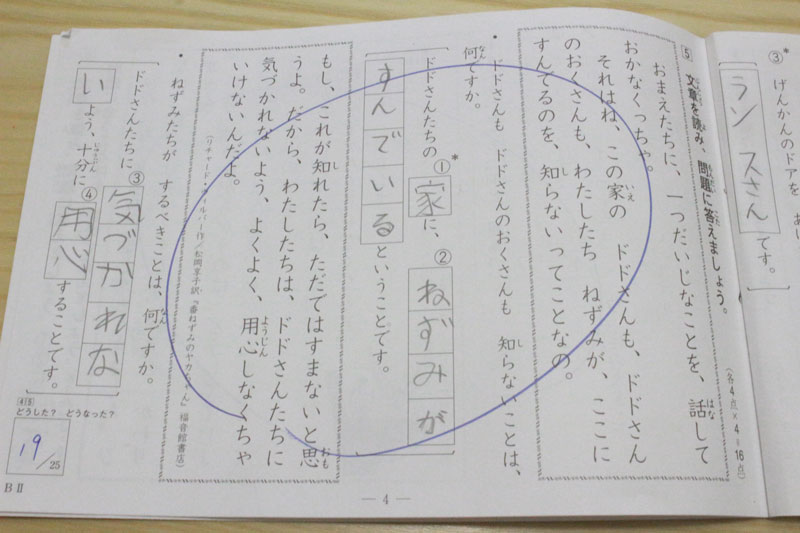 ③* げんかんのドアを あ
ランスさん です。
5 文章を読み、問題に答えましょう。
(各4点×4=16点)
おまえたちに、一つだいじなことを、話して
おかなくっちゃ。
それはね、この家の ドドさんも、ドドさん
のおくさんも、わたしたち ねずみが、ここに
すんでるのを、知らないってことなの。
・ドドさんも ドドさんのおくさんも 知らないことは、
何ですか。
ドドさんたちの ①* 家 に、② ねずみが
すんでいる ということです。
もし、これが知れたら、ただではすまないと思
うよ。だから、わたしたちは、ドドさんたちに
気づかれないよう、よくよく、用心しなくちゃ
いけないんだよ。
・ねずみたちが するべきことは、何ですか。
ドドさんたちに ③ 気づかれな
い よう、十分に ④ 用心 することです。
415
どうした? どうなった?
19/25
BⅡ
— 4 —